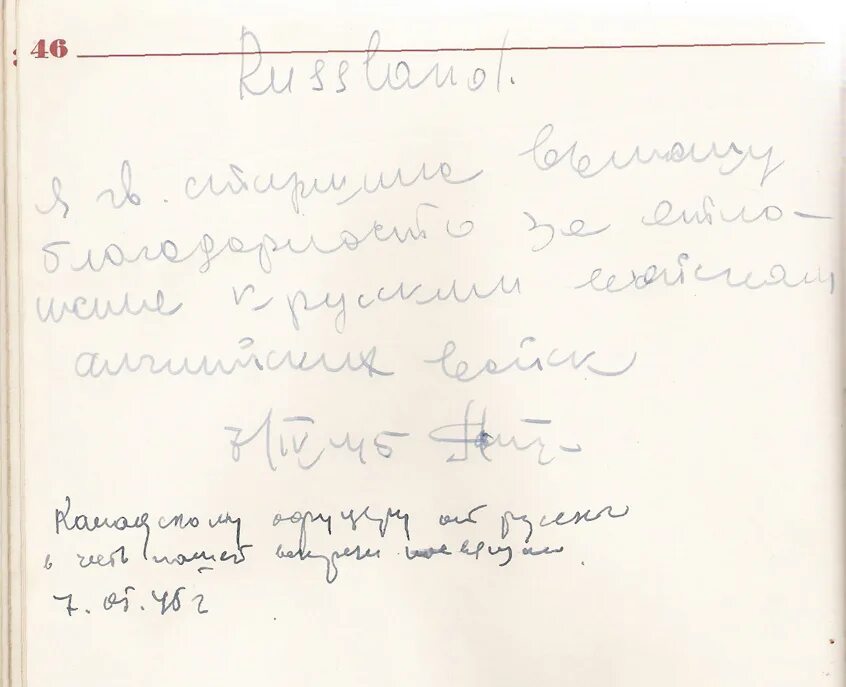 46
Russland.
Я гв. старшина выношу
благодарность за отно-
шение к русским войскам
английских войск
7/IV 45
Канадскому офицеру от русских
в честь нашей встречи
7. 05. 45 г